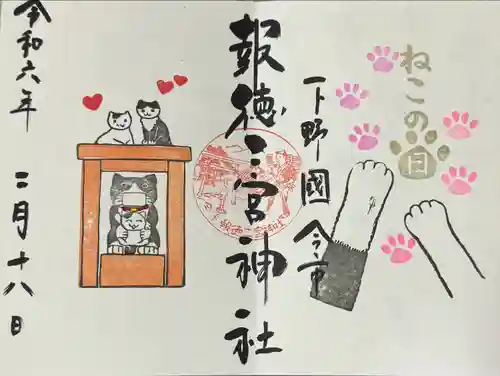 ねこの日
下野國今市
報徳二宮神社
令和六年 二月十八日